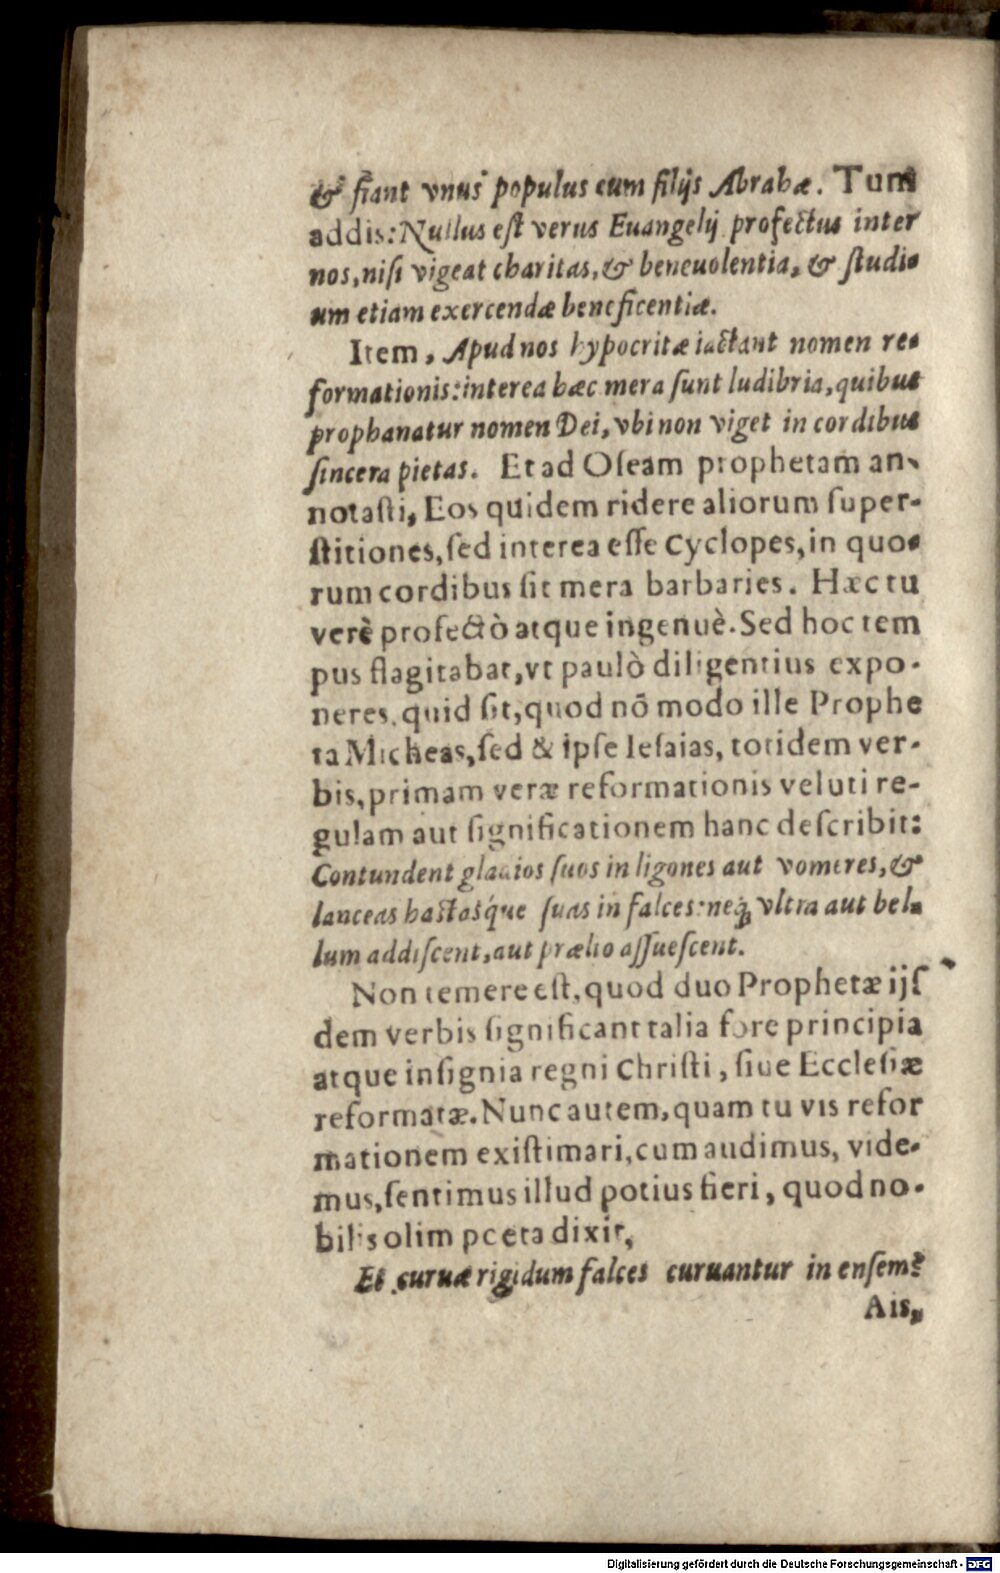 & fiant vnus populus cum filijs Abrahæ. Tum
addis: Nullus eſt verus Euangelij profectus inter
nos, niſi vigeat charitas, & beneuolentia, & ſtudi-
um etiam exercendæ beneficentiæ.
Item, Apud nos hypocritæ iactant nomen re-
formationis: interea hæc mera ſunt ludibria, quibus
prophanatur nomen Dei, vbi non viget in cordibus
ſincera pietas. Et ad Oſeam prophetam an-
notaſti, Eos quidem ridere aliorum ſuper-
ſtitiones, ſed interea eſſe Cyclopes, in quo-
rum cordibus ſit mera barbaries. Hæc tu
verè profectò atque ingenuè. Sed hoc tem
pus flagitabat, vt paulò diligentius expo-
neres, quid ſit, quod nõ modo ille Prophe
ta Micheas, ſed & ipſe Ieſaias, totidem ver-
bis, primam veræ reformationis veluti re-
gulam aut ſignificationem hanc deſcribit:
Contundent gladios ſuos in ligones aut vomeres, &
lanceas haſtasq́ue ſuas in falces: neq; vltra aut bel-
lum addiſcent, aut prælio aſſueſcent.
Non temere eſt, quod duo Prophetæ ijſ
dem verbis ſignificant talia fore principia
atque inſignia regni Chriſti, ſiue Eccleſiæ
reformatæ. Nunc autem, quam tu vis refor
mationem exiſtimari, cum audimus, vide-
mus, ſentimus illud potius fieri, quod no-
bilis olim poeta dixit,
Et curuæ rigidum falces curuantur in enſem?
Ais,
Digitalisierung gefördert durch die Deutsche Forschungsgemeinschaft - DFG